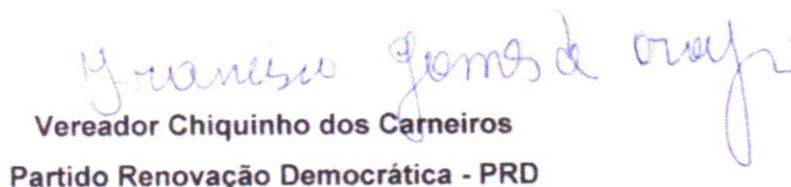 Francisco Gomes de
Vereador Chiquinho dos Carneiros
Partido Renovação Democrática - PRD